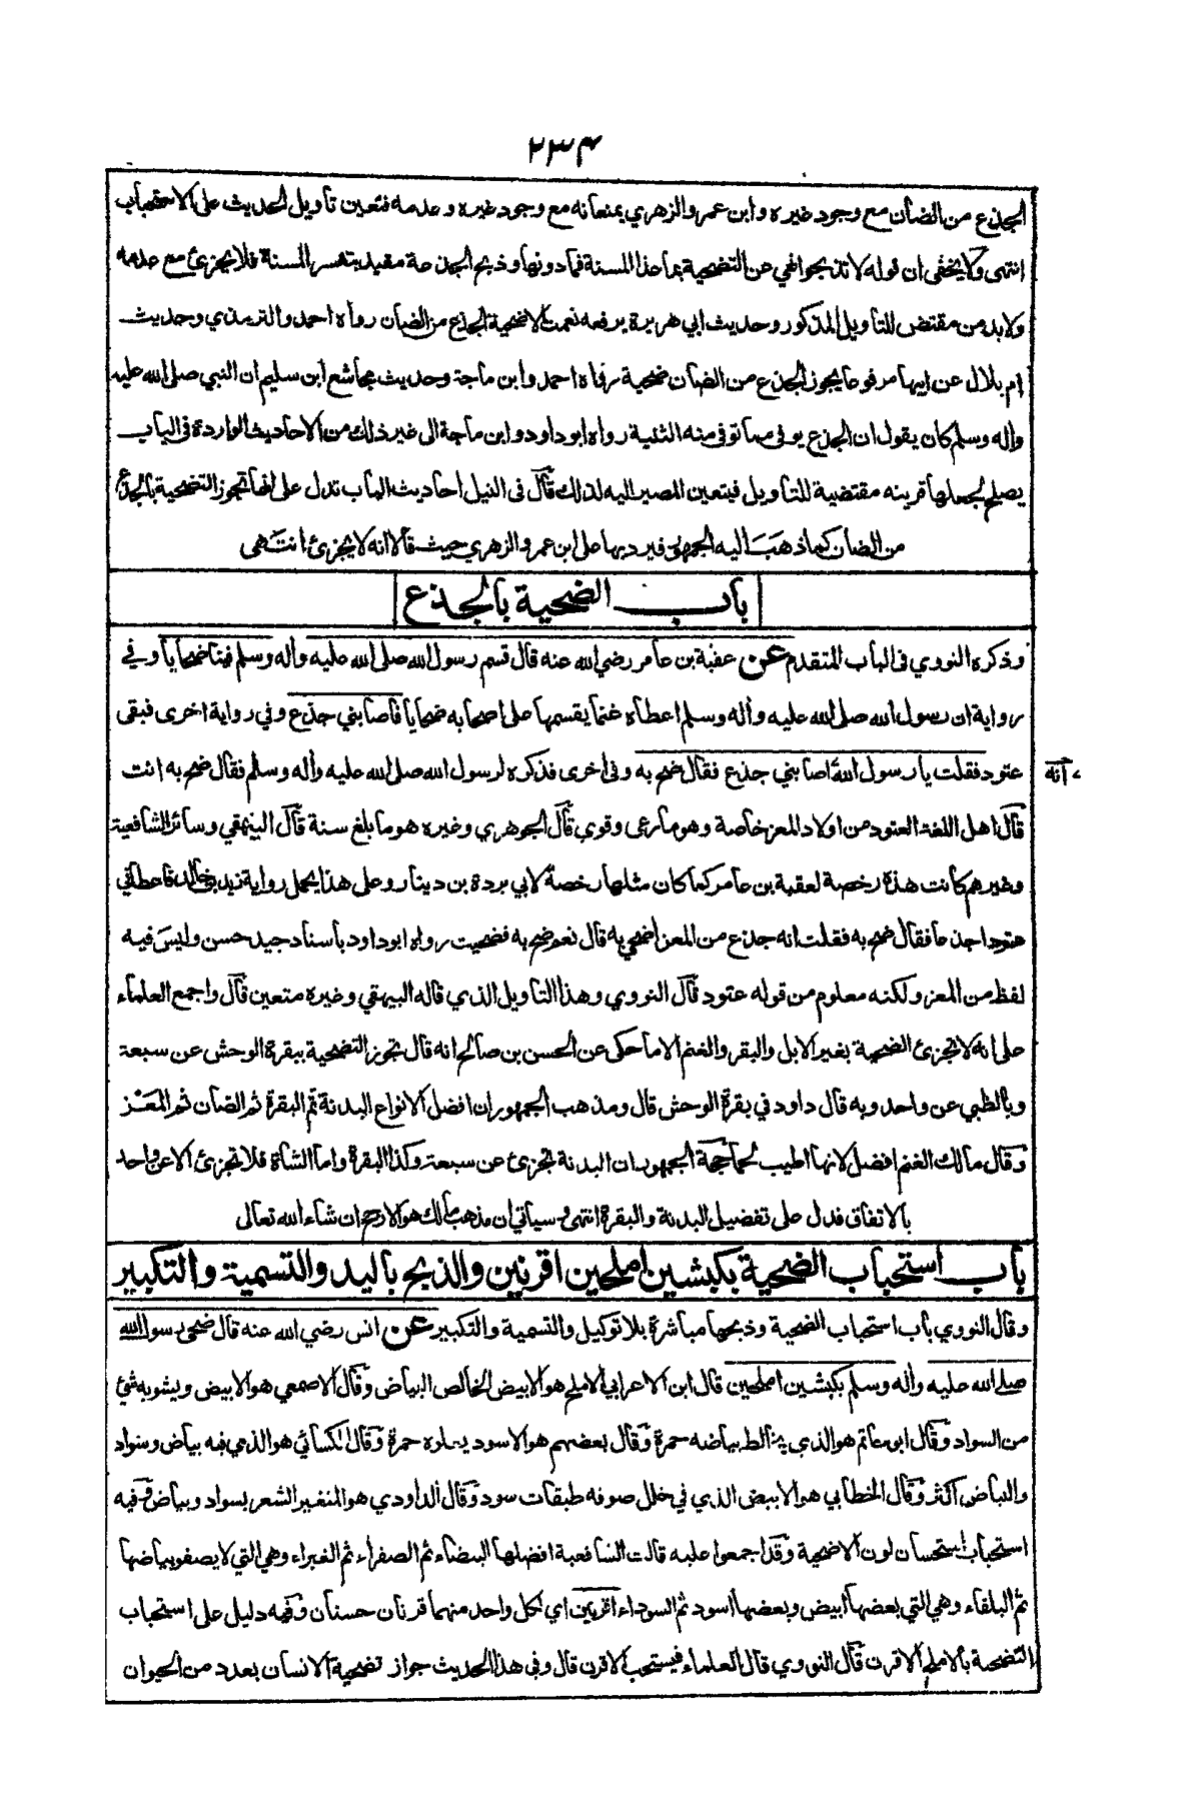 ٢٣٤
الجذع من الضأن مع وجود غيره وابن عمر والزهري يمنعانه مع وجود غيره وعدمه فتعين تأويل الحديث على الاستحباب
انتهى ولا يخفى ان قوله لا تذبحوا نهي عن التضحية بما عدا المسنة فما دونها وذبح الجذعة مقيد بتعسر المسنة فلا يجزئ مع عدمه
ولابد من مقتض للتأويل المذكور وحديث ابي هريرة يرفعه نعمت الاضحية الجذع من الضأن رواه احمد والترمذي وحديث
ام بلال عن ابيها مرفوعا يجوز الجذع من الضأن ضحية رواه احمد وابن ماجة وحديث مجاشع ابن سليم ان النبي صلى الله عليه
واله وسلم كان يقول ان الجذع يوفى مما توفى منه الثنية رواه ابو داود وابن ماجة الى غير ذلك من الاحاديث الواردة فى الباب
يصلح لجعلها قرينه مقتضية للتأويل فيتعين المصير اليه لذلك قال فى النيل احاديث الباب تدل على انها تجوز التضحية بالجذع
من الضأن كما ذهب اليه الجمهور فيرد بها على ابن عمر والزهري حيث قالا انه لا يجزئ انتهى
باب الضحية بالجذع
وذكره النووي فى الباب المتقدم عن عقبة بن عامر رضي الله عنه قال قسم رسول الله صلى الله عليه واله وسلم فينا ضحايا وفي
رواية ان رسول الله صلى الله عليه واله وسلم اعطاه غنما يقسمها على اصحابه ضحايا فاصابني جذع وفي رواية اخرى فبقى
عتود فقلت يا رسول الله اصابني جذع فقال ضح به وفى اخرى فذكره لرسول الله صلى الله عليه واله وسلم فقال ضح به انت
انه
قال اهل اللغة العتود من اولاد المعز خاصة وهو ما رعى وقوي قال الجوهري وغيره هو ما بلغ سنة قال البيهقي وسائر الشافعية
وغيرهم كانت هذه رخصة لعقبة بن عامر كما كان مثلها رخصة لابي بردة بن دينار وعلى هذا يحمل رواية زيد بن خالد فاعطاني
عتودا جذعا فقال ضح به فقلت انه جذع من المعز اضحي به قال نعم ضح به فضحيت رواه ابو داود باسناد جيد حسن وليس فيه
لفظ من المعز ولكنه معلوم من قوله عتود قال النووي وهذا التأويل الذي قاله البيهقي وغيره متعين قال واجمع العلماء
على انه لا تجزئ الضحية بغير الابل والبقر والغنم الا ما حكى عن الحسن بن صالح انه قال تجوز التضحية ببقرة الوحش عن سبعة
وبالظبي عن واحد وبه قال داود في بقرة الوحش قال ومذهب الجمهور ان افضل الانواع البدنة ثم البقرة ثم الضأن ثم المعز
وقال مالك الغنم افضل لانها اطيب لحما حجة الجمهور ان البدنة تجزئ عن سبعة وكذا البقرة واما الشاة فلا تجزئ الا عن واحد
بالاتفاق فدل على تفضيل البدنة والبقرة انتهى وسيأتي ان مذهب مالك هو الارجح ان شاء الله تعالى
باب استحباب الضحية بكبشين املحين اقرنين والذبح باليد والتسمية والتكبير
وقال النووي باب استحباب الضحية وذبحها مباشرة بلا توكيل والتسمية والتكبير عن انس رضي الله عنه قال ضحى رسول الله
صلى الله عليه واله وسلم بكبشين املحين قال ابن الاعرابي الاملح هو الابيض الخالص البياض وقال الاصمعي هو الابيض ويشوبه شئ
من السواد وقال ابو حاتم هو الذي يخالط بياضه حمرة وقال بعضهم هو الاسود يعلوه حمرة وقال الكسائي هو الذي فيه بياض وسواد
والبياض اكثر وقال الخطابي هو الابيض الذي في خلل صوفه طبقات سود وقال الداودي هو المتغير الشعر بسواد وبياض وفيه
استحباب استحسان لون الاضحية وقد اجمعوا عليه قالت الشافعية افضلها البيضاء ثم الصفراء ثم الغبراء وهي التي لا يصفو بياضها
ثم البلقاء وهي التي بعضها ابيض وبعضها اسود ثم السوداء اقرنين اي لكل واحد منهما قرنان حسنان وفيه دليل على استحباب
التضحية بالاملح الاقرن قال النووي قال العلماء فيستحب الاقرن قال وفي هذا الحديث جواز تضحية الانسان بعدد من الحيوان